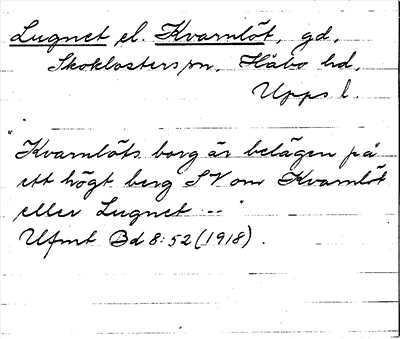 Lugnet el. Kvarnlöt, gd,
Skoklosters sn, Håbo hd,
Upps l.
"Kvarnlöts borg är belägen på
ett högt berg SV om Kvarnlöt
eller Lugnet --"
Ufmt Bd 8:52 (1918).